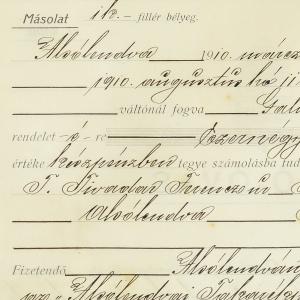 Másolat 1k.– fillér bélyeg.
Alsólendva 1910. márcz
1910. augusztus hó 31
váltónál fogva
rendelet–é–re Ezernégy
értéke készpénzben tegye számolásba tud
T. Tivadar Ferencz úr
Alsólendva
Fizetendő Alsólendván
az Alsólendvai Takarék